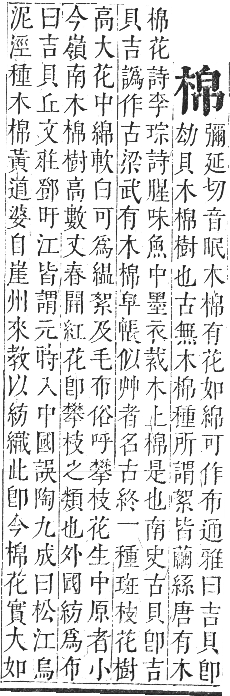 棉
彌延切音眠木棉有花如綿可作布通雅曰吉貝卽
劫貝木棉樹也古無木棉種所謂絮皆繭絲唐有木
棉花詩李琮詩腥味魚中墨衣裁木上棉是也南史古貝卽吉
貝吉譌作古梁武有木棉皁帳似艸者名古終一種班枝花樹
高大花中綿軟白可爲縕絮及毛布俗呼攀枝花生中原者小
今嶺南木棉樹高數丈春開紅花卽攀枝之類也外國紡爲布
曰吉貝丘文莊鄧旴江皆謂元時入中國誤陶九成曰松江烏
泥涇種木棉黃道婆自崖州來敎以紡織此卽今棉花實大如